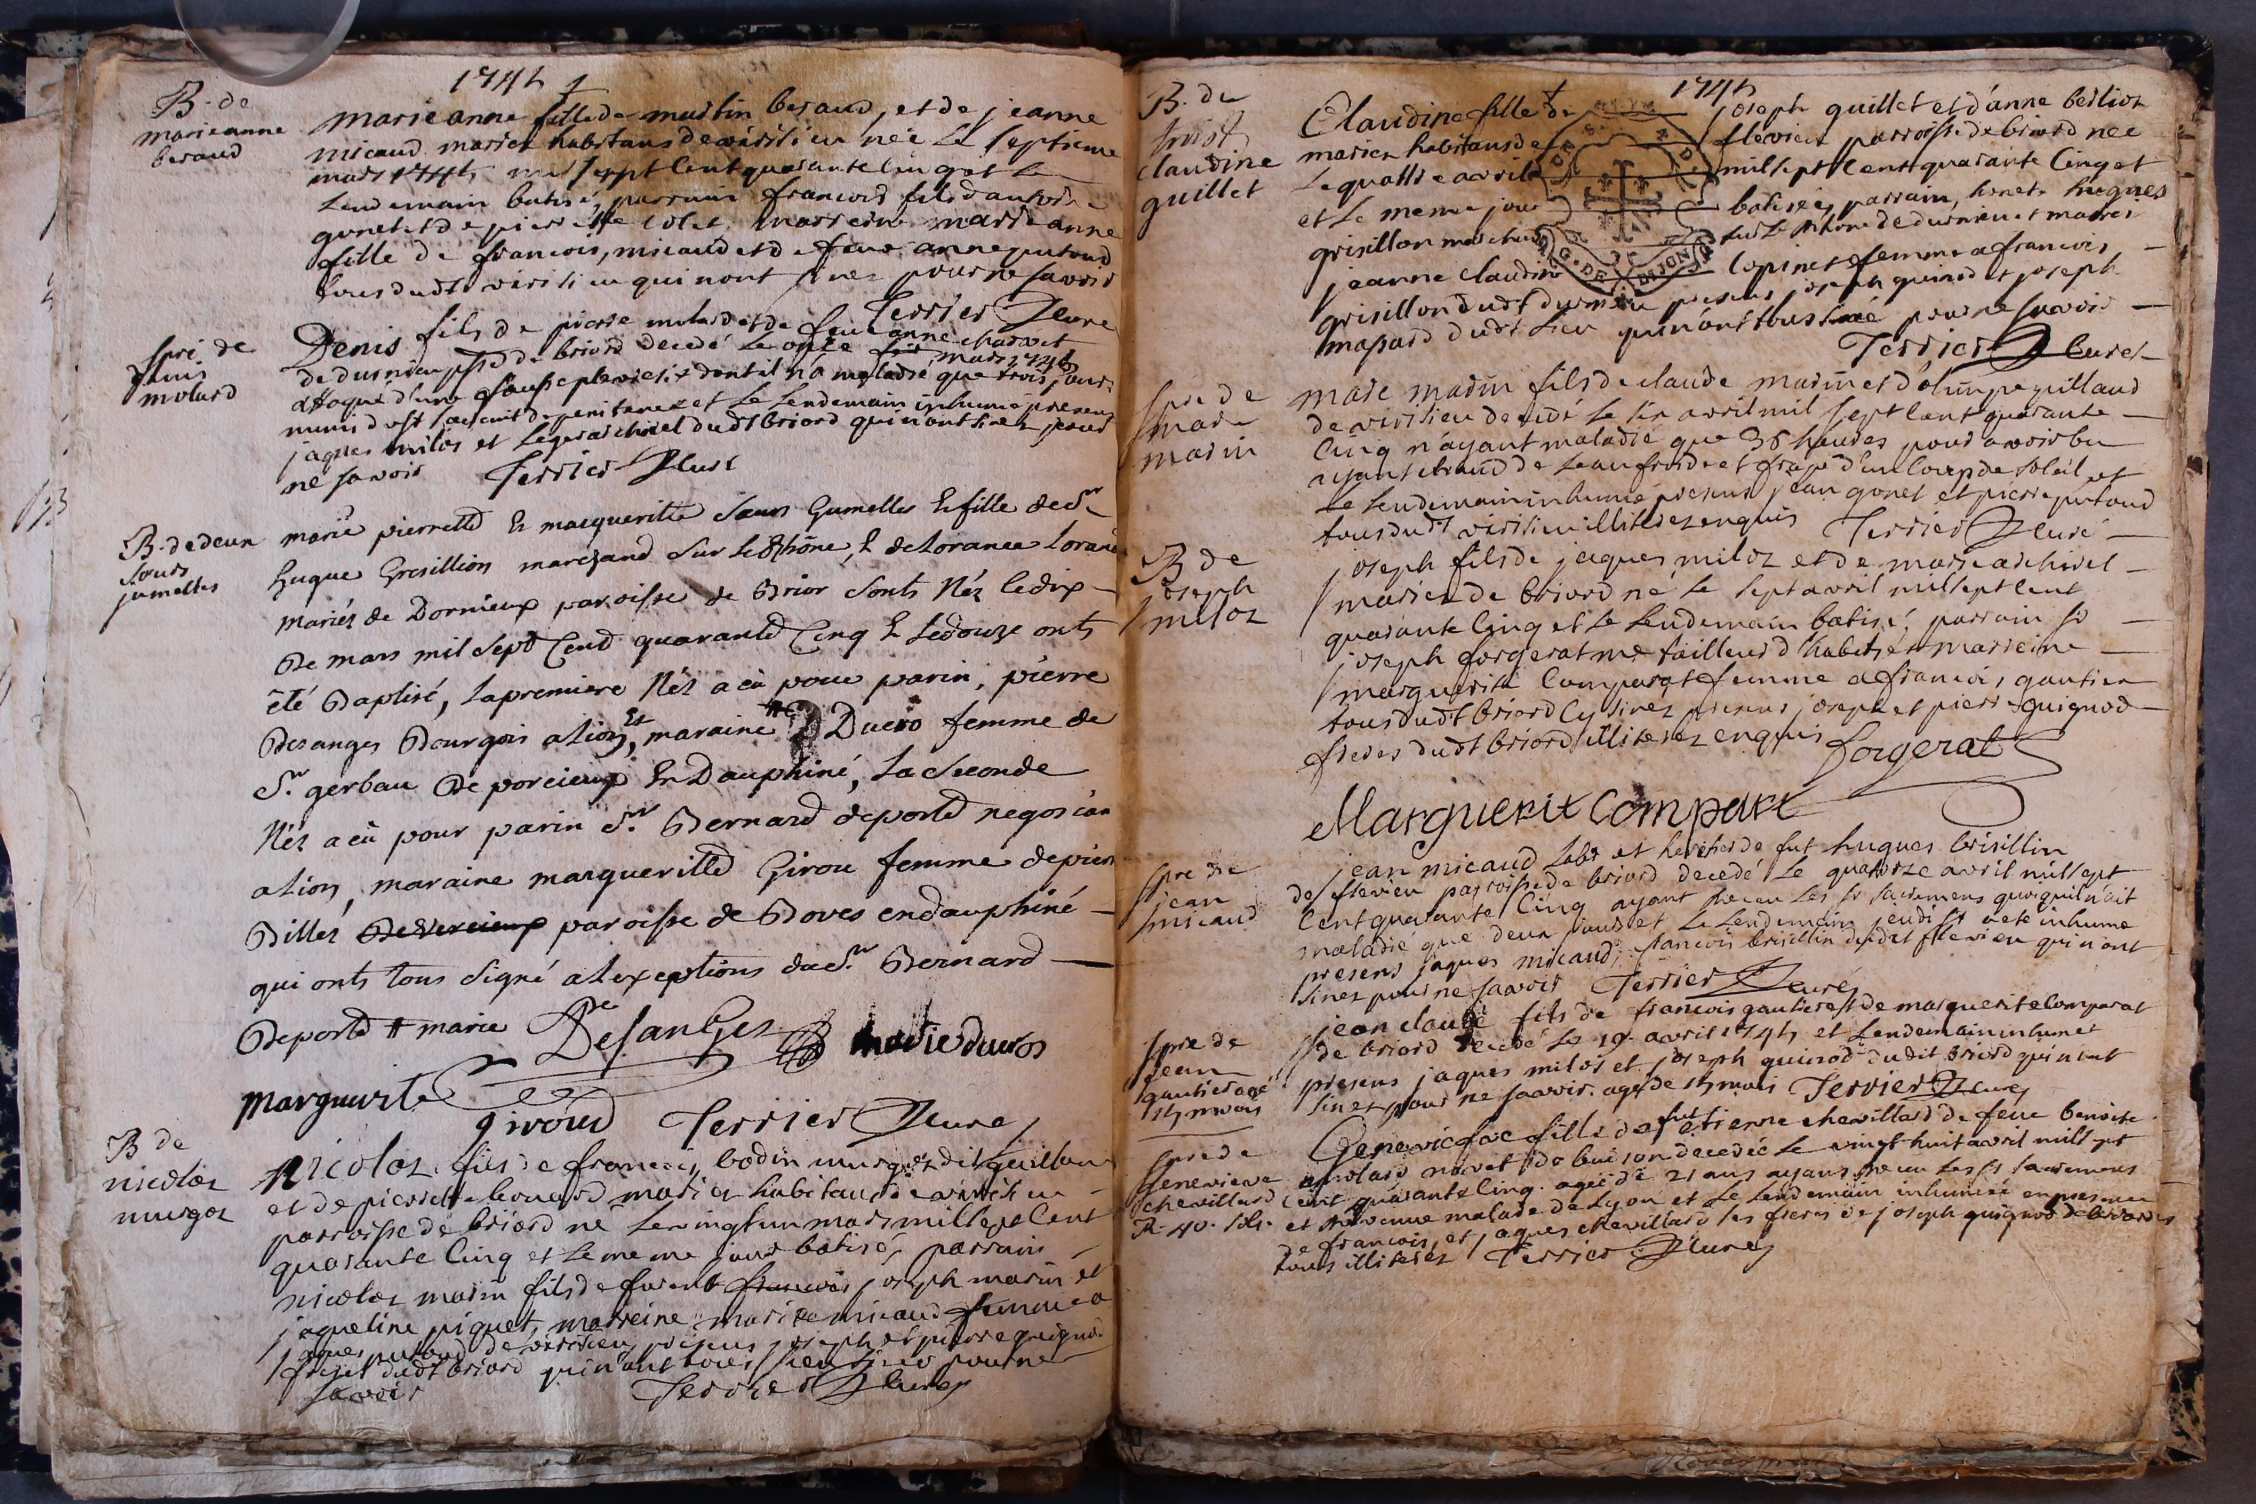 1745
B. de
marieanne
beraud
marie anne fille de martin beraud, et de jeanne
micaud mariez habitans de virisieu née le septieme
mars 1745 mil sept cent quarante cinq et le
lendemain batisé, parrain francois fils d'antoine
gonet et de pierrette colet marreine marie anne
fille de francois, micaud et de feue anne putoud
tous dudt virisieu qui n'ont sinez pour ne savoir
Terrier Cure
Spre de
Denis
molard
Denis fils de pierre molard et de feue anne charvet
de durnieu psse de briord decedé le onze mars 1745
attaqué d'une fausse plevresie dont il n'a maladié que trois jours
muni du st sacrement de penitence et le lendemain inhumé presens
jaques miloz et leger archirel dudt briord qui n'ont sinez pour
ne savoir Terrier Cure
B. de deux
sœurs
jumelles
marie pierrette & margueritte sœurs Gumelles & fille de Sr
huque Gresillion marchand sur le Rhône, & de Lorance Loranc
mariéz de Dornieux paroisse de Brior sonts Néz le dix
De mars mil sept Cend quarante Cinq & le douze onts
été Baptisé, la premiere Néz a eû pour parin, pierre
Desanges Bourgois a lion, Et maraine # Duero femme de
Sr. gerbau De porcieux En Dauphiné, la Seconde
Néz a eû pour parin Sr Bernard deporte negocian
a lion, maraine margueritte Girou femme de pier
Billiez De vercieux paroisse de Boves en dauphiné
qui onts tous signé a l'exceptions du Sr Bernard
Deporte # marie Desanges marie dueros
marguerite
giroud Terrier Cure
B de
nicolaz
murgoz
nicolaz fils de francois bodin murgoz dit guillau
et de pierrette bouard mariez habitans de virisieu
parroisse de briord né le vingt un mars mil sept cent
quarante cinq et le meme jour batisé, parrain
nicolaz marin fils de francois joseph marin et
jaqueline piquet, marreine marie micaud femme a
jaques putoud de virisieu presens joseph et pierre guignod
frejet dudt briord qui n'ont tous sinez pour ne
savoir Terrier Cure
1745
B. de
claudine
guillet
Claudine fille de joseph guillet et d'anne berlioz
mariez habitans de flevieu parroisse de briord née
le quattre avril mil sept cent quarante cinq et
et le meme jour batisée, parrain, honete hugues
grisillon marchand sur le Rhone de durnieu et marrei
jeanne claudine copinet femme a francois
grisillon dudt durnieu presens joseph guinod et joseph
mapard dudt lieu qui n'ont tous siné pour ne savoir
Terrier Curé
DE
G. DE DIJON
Spre de
marc
marin
marc marin fils de claude marin et d'olimpe guillaud
de virisieu decedé le six avril mil sept cent quarante
cinq n'ayant maladié que 36 heures pour avoir bu
ayant chaud de l'eau froide et frapé d'un coup de soleil et
le lendemain inhumé presens jean gonet et pierre putoud
tous dudt virisieu illiterez enquis Terrier Curé
B de
joseph
miloz
joseph fils de jaques miloz et de marie archirel
mariez de briord né le sept avril mil sept cent
quarante cinq et le lendemain batisé, parrain sr
joseph forgerat me tailleur d'habits et marreine
marguerite comparat femme a francois gautier
tous dudt briord cy sinez presens joseph et pierre guignod
freres dudt briord illiterez enquis forgerat
Marguerite compart
Spre de
jean
micaud
jean micaud labr et heritier de fut hugues brisillin
de flevieu parroisse de briord decedé le quatorze avril mil sept
cent quarante cinq ayant recu les sts sacremens quoiqu'il n'ait
maladié que deux jours et le lendemain jeudi st a eté inhumé
presens jaques micaud, francois brisillin dudit flevieu qui n'ont
sinez pour ne savoir Terrier Curé
Spre de
jean
gautier agé
15 mois
jean claude fils de francois gautier et de marguerite comparat
de briord decedé le 19 avril 1745 et lendemain inhumez
presens jaques miloz et joseph guinod dudit briord qui n'ont
sinez pour ne savoir. agé de 15 mois Terrier Curé
Spre de
Genevieve
chevillard
R. 40. sols.
Genevieve fille de fut etienne chevillard de feue benoite
nolard novet de buison decedée le vingt huit avril mil sept
cent quarante cinq. agée de 21 ans ayans recu les sts sacremens
et revenue malade de Lyon et le lendemain inhumée en presence
de francois, et jaques chevillard ses freres de joseph guignod de briord
tous illiterez Terrier Curé